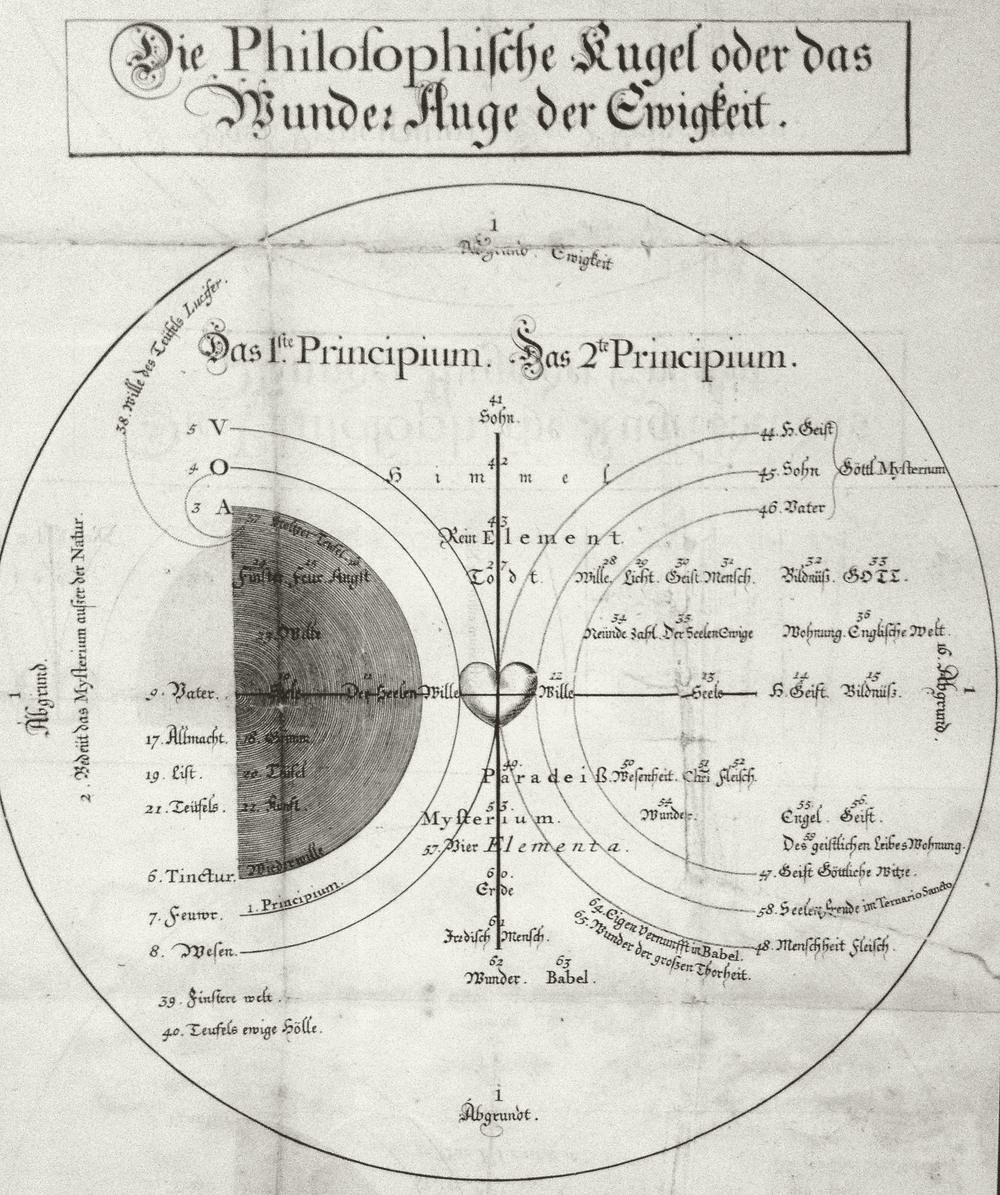 Die Philosophische Kugel oder das
Wunder Auge der Ewigkeit.
1
Abgrund. Ewigkeit
38. Wille des Teüfels Lucifer.
Das 1.ste Principium. Das 2te Principium.
41
Sohn.
5 V
44. H. Geist
4 O
42
H i m m e l
45. Sohn
Göttl Mysterium
3 A
46. Vater
37 Stoltzer Teufel
43
Rein Element.
Finster Feur Angst
27
Todt.
28 29 30 31 32 33
Wille. Licht. Geist Mensch. Bildnüß. GOTT.
34 35 36
Reinde Zahl. Der Seelen Ewige Wohnung. Englische Welt.
Wille
9. Vater.
10
Seele
11
Der Seelen Wille
12
Wille
13
Seele
14 15
H. Geist. Bildnüß.
16. Abgrund.
1
1
Abgrund.
2. Bedeüt das Mysterium außer der Natur.
17. Allmacht. 18. Grimm.
19. List. 20. Teüfel
49. 50 51 52
Paradeiß. Wesenheit. Chri Fleisch.
21. Teüfels. 22. Kunst.
53.
Mysterium.
54
Wunder.
55. 56.
Engel. Geist.
57. Vier Elementa.
59
Des geistlichen Leibes Wohnung.
6. Tinctur. Wiederwille
60.
Erde
47. Geist Göttliche Witze.
7. Feuwr. 1. Principium.
58. Seelen Ende im Ternario Sancto
61
Irdisch Mensch.
64. Eigen Vernunfft in Babel.
65. Wunder der großen Thorheit.
8. Wesen.
48. Menschheit Fleisch.
62 63
Wunder. Babel.
39. Finstere welt.
40. Teufels ewige Hölle.
1
Abgrundt.